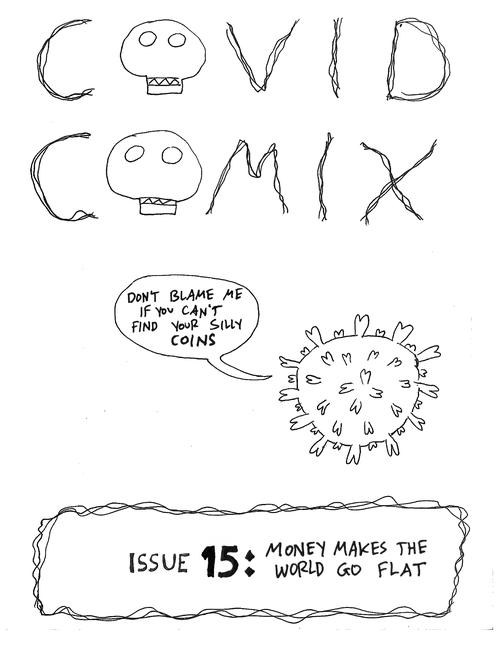 COVID
COMIX
DON'T BLAME ME
IF YOU CAN'T
FIND YOUR SILLY
COINS
ISSUE 15: MONEY MAKES THE
WORLD GO FLAT